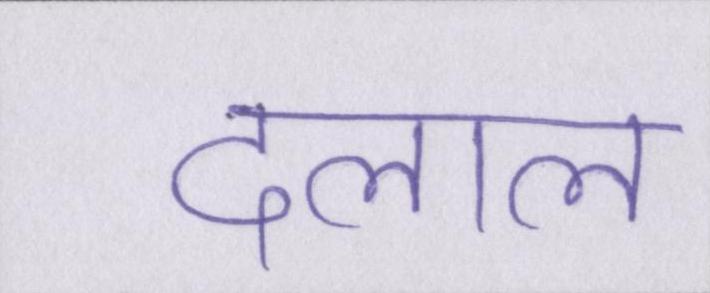 दलाल